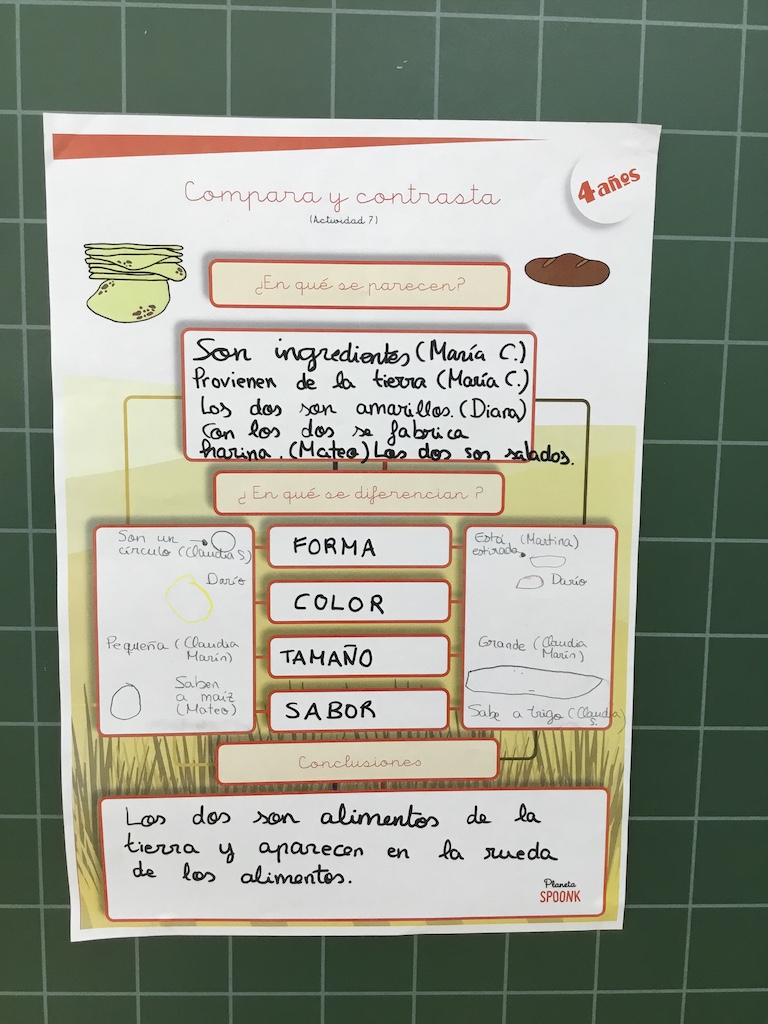 4 años
Compara y contrasta
(Actividad 7)
¿En qué se parecen?
Son ingredientes (María C.)
Provienen de la tierra (María C.)
Los dos son amarillos. (Diana)
Con los dos se fabrica
harina. (Mateo) Los dos son salados.
¿En qué se diferencian?
Son un
círculo (Claudia S)
Darío
Pequeña (Claudia
Marín)
Saben
a maíz
(Mateo)
FORMA
COLOR
TAMAÑO
SABOR
Está (Martina)
estirado
Darío
Grande (Claudia
Marín)
Sabe a trigo (Claudia
S.)
Conclusiones
Los dos son alimentos de la
tierra y aparecen en la rueda
de los alimentos.
Planeta
SPOONK